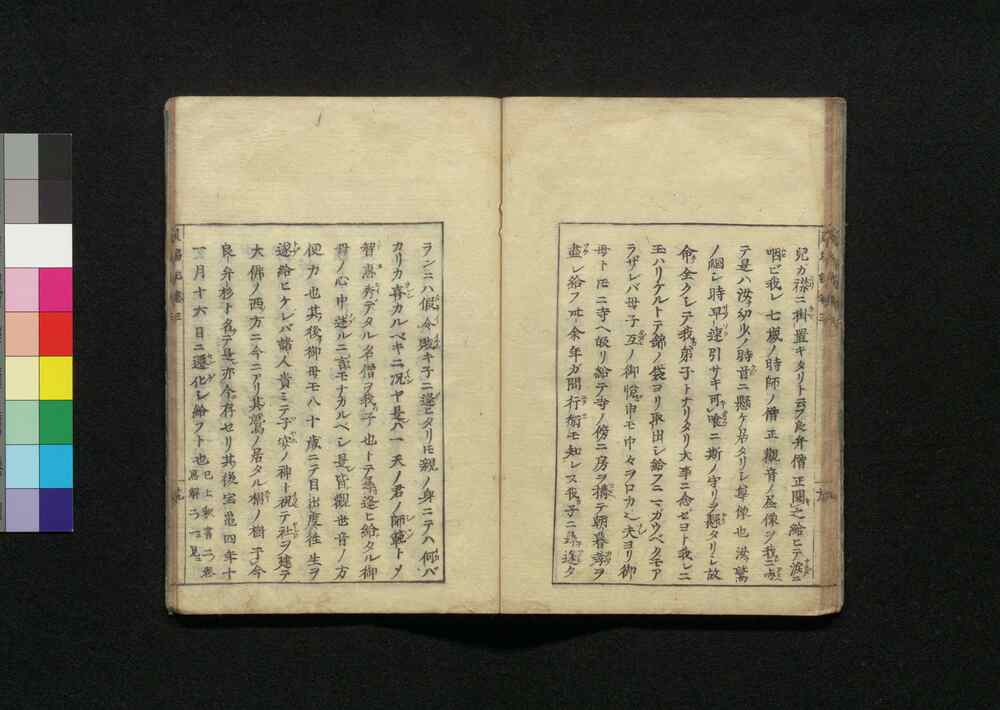 兒カ襟ニ掛置キタリト云フ良弁僧正聞之給ヒテ涙ニ
咽ビ我レ七歳ノ時師ノ僧正觀音ノ尊像ヲ我ニ与
テ是ハ汝カ幼少ノ時首ニ懸ケ居タリシ尊像也汝鷲
ノ爴シ時早速引サキ可喰ニ斯ノ守リヲ懸タリシ故
命全クシテ我弟子トナリタリ大事ニ念ゼヨト我レニ
玉ハリケルトテ錦ノ袋ヨリ取出シ給フニマガウベクモア
ラザレバ母子互ノ御愴申モ中々ヲロカ也夫ヨリ御
母トモニ寺ヘ皈リ給テ寺ノ傍ニ房ヲ搆テ朝暮孝ヲ
盡シ給フ卅余年ガ間行衞モ知レヌ我子ニ尋逢タ
ランニハ假令賤キ子ニ逢ヒタリトモ親ノ身ニテハ何バ
カリカ喜カルベキニ况ヤ是ハ一天ノ君ノ師範トメ
智惠秀デタル名僧ヲ我子也トテ尋逢ヒ給タル御
母ノ心中述ルニ言モナカルベシ是レ皆觀世音ノ方
便力也其後御母モ八十歳ニテ目出度往生ヲ
遂給ヒケレバ諸人貴ミテ子安ノ神ト祝テ社ヲ建テ
大佛ノ西方ニ今ニアリ其鷲ノ居タル樹ノ樹子今
良弁杉ト名テ是亦今存セリ其後宝亀四年十
一月十六日ニ遷化シ給フト也 已上釈書二ノ巻